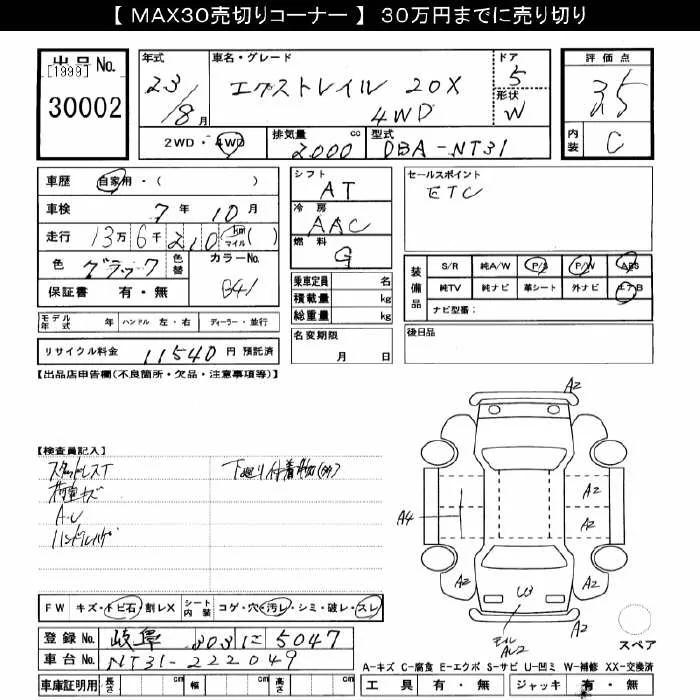 【 MAX30売切りコーナー 】 30万円までに売り切り
出品 No.
[1999]
30002
年式
23/8月
車名・グレード
エクストレイル 20X
4WD
ドア
5
形状
W
評価点
3.5
内装
C
2WD・4WD
排気量
2000 cc
型式
DBA-NT31
車歴 自家用・( )
車検 7年 10月
走行 13万 6千 210 km マイル ( )
色 ブラック
色替
カラーNo.
G41
保証書 有・無
シフト
AT
冷房
AAC
燃料
G
乗車定員 名
積載量 kg
総重量 kg
セールスポイント
ETC
装備品
S/R 純A/W P/S P/W ABS
純TV 純ナビ 革シート 外ナビ エアB
ナビ型番:
モデル年式 年 ハンドル 左・右 ディーラー・並行
名変期限
月 日
後日品
リサイクル料金 11540 円 預託済
【出品店申告欄(不良箇所・欠品・注意事項等)】
【検査員記入】
スタッドレスT
下廻り付着物(多)
荷室キズ
A.U
ハンドルハゲ
A2
A2
A2
A4
A2
A2
A2
U3
モール
AU2
A2
スペア
FW キズ・トビ石・割レX
シート内装 コゲ・穴・汚レ・シミ・破レ・スレ
登録 No. 岐阜 303 に 5047
車台 No. NT31-222049
車庫証明用 長さ cm 幅 cm 高さ cm
A-キズ C-腐食 E-エクボ S-サビ U-凹ミ W-補修 XX-交換済
工具 有・無 ジャッキ 有・無